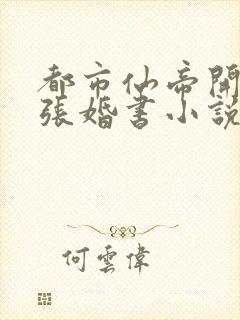 都市仙帝開
張婚書小說
何雲偉